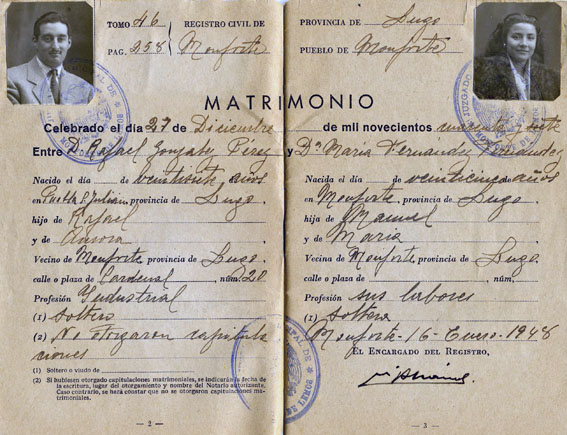 TOMO 46
PAG. 258
REGISTRO CIVIL DE
Monforte
PROVINCIA DE Lugo
PUEBLO DE Monforte
MATRIMONIO
Celebrado el día 27 de Diciembre de mil novecientos cuarenta y siete
Entre D. Rafael Gonzalo Pérez y Dª Maria Fernandez
Nacido el día de veintisiete años
en Puebla S. Julián, provincia de Lugo
hijo de Rafael
y de Aurora
Vecino de Monforte, provincia de Lugo
calle o plaza de Cardenal, núm. 20
Profesión Industrial
(1) soltero
(2) No otorgaron capitula
ciones
(1) Soltero o viudo de
(2) Si hubiesen otorgado capitulaciones matrimoniales, se indicarán la fecha de
la escritura, lugar del otorgamiento y nombre del Notario autorizante.
Caso contrario, se hará constar que no se otorgaron capitulaciones ma-
trimoniales.
— 2 —
Nacida el día de veinticinco años
en Monforte, provincia de Lugo
hija de Manuel
y de Maria
Vecina de Monforte, provincia de Lugo.
calle o plaza de , núm.
Profesión sus labores
(1) soltera
Monforte - 16 - Enero - 1948
EL ENCARGADO DEL REGISTRO,
— 3 —